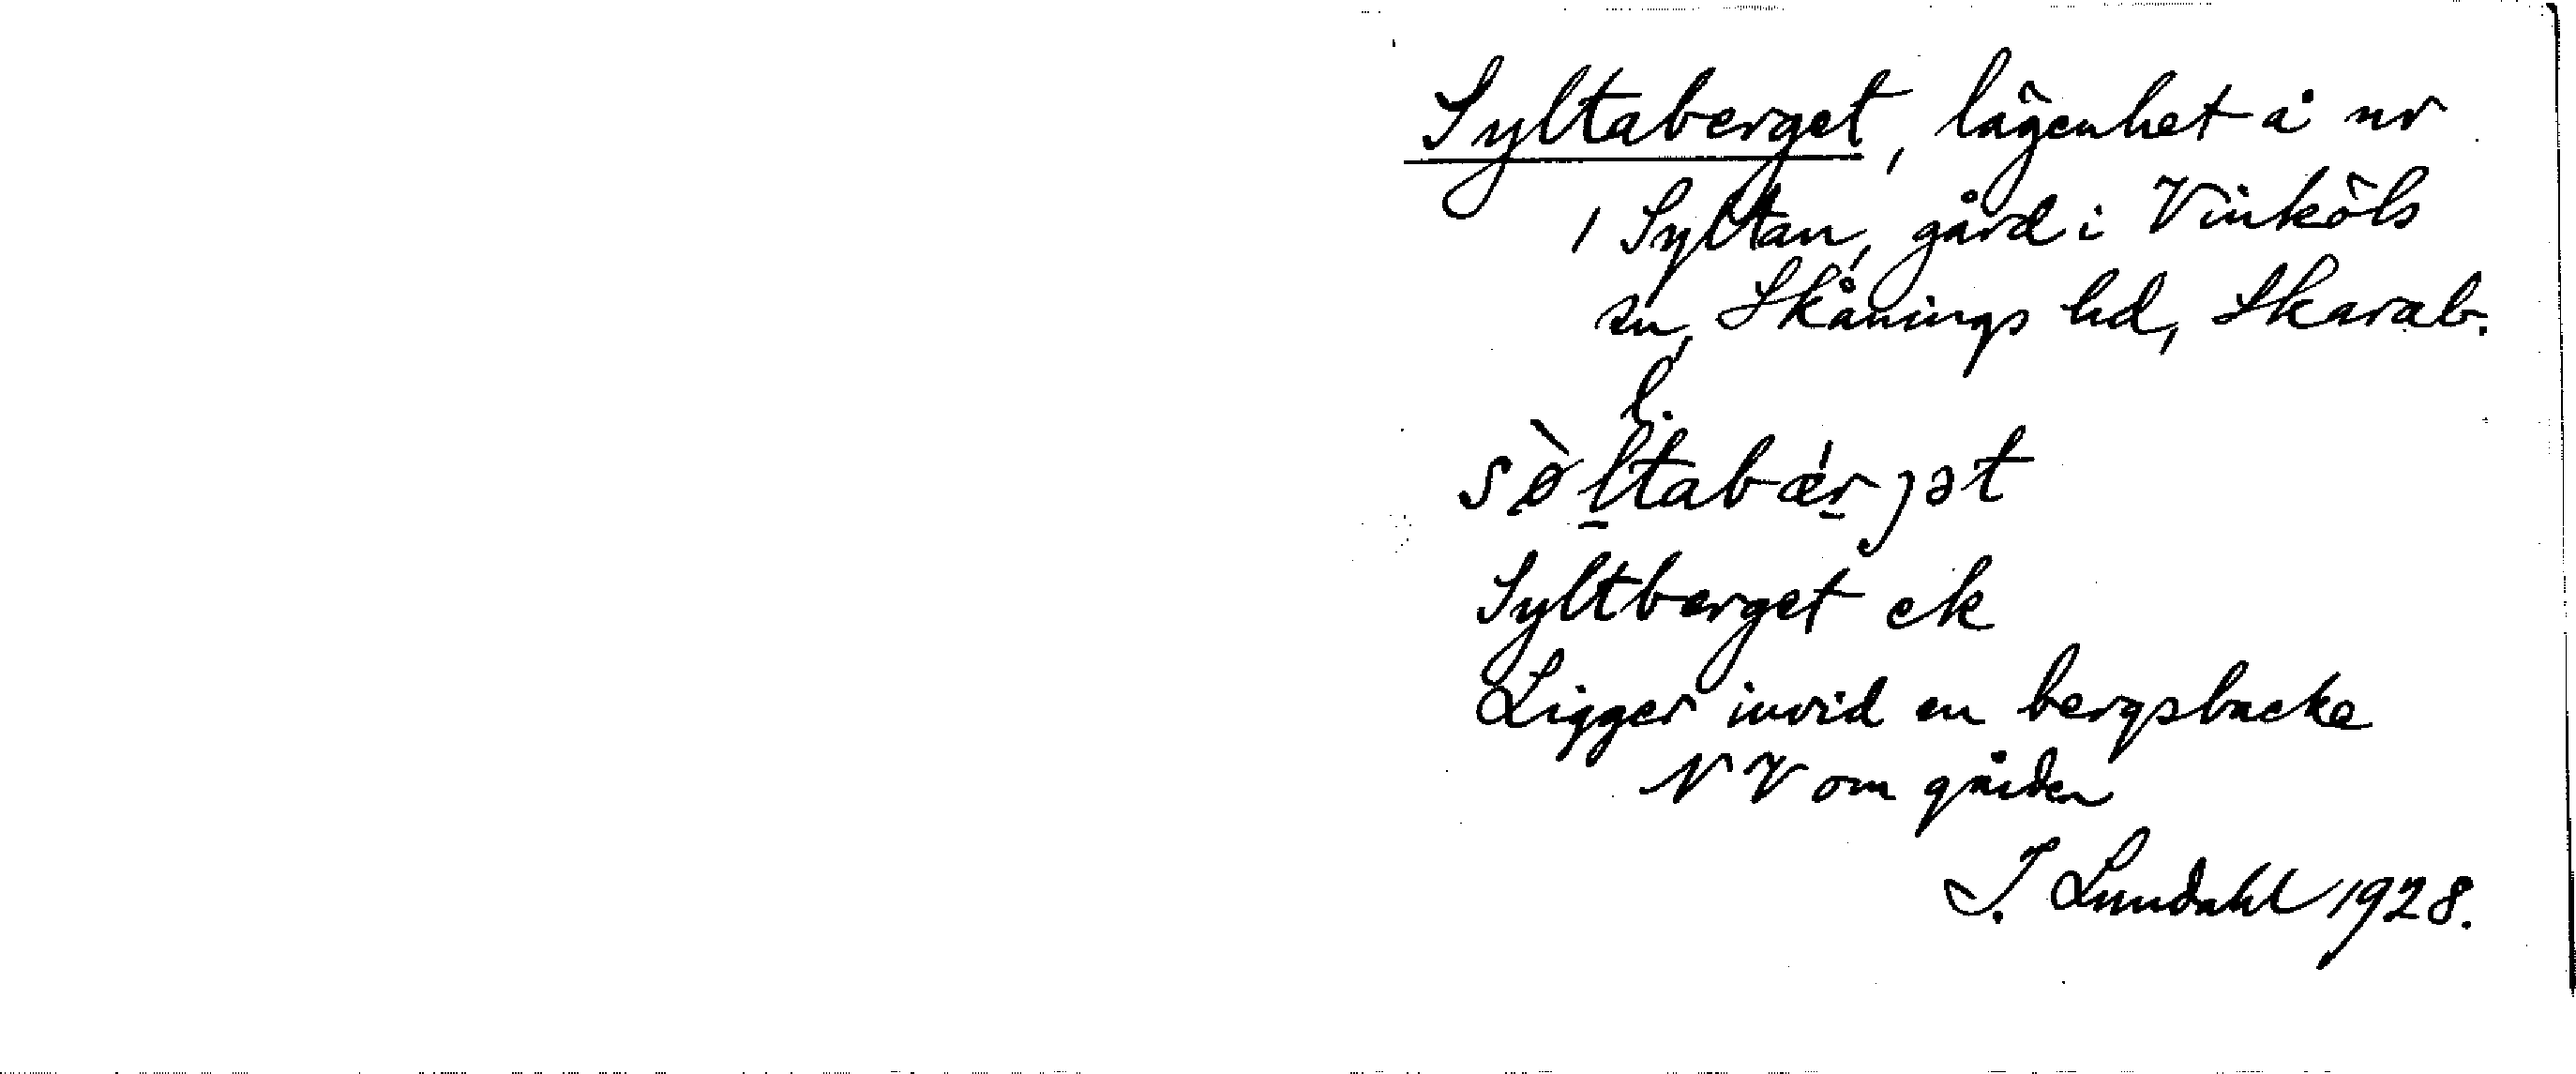 Syltaberget, lägenhet å nr
1 Syltan, gård i Vinköls
sn, Skånings hd, Skarab.
l.
sø̀ltabǽrjət
Syltberget ek
Ligger invid en bergsbacke
NV om gården
I. Lundahl 1928.